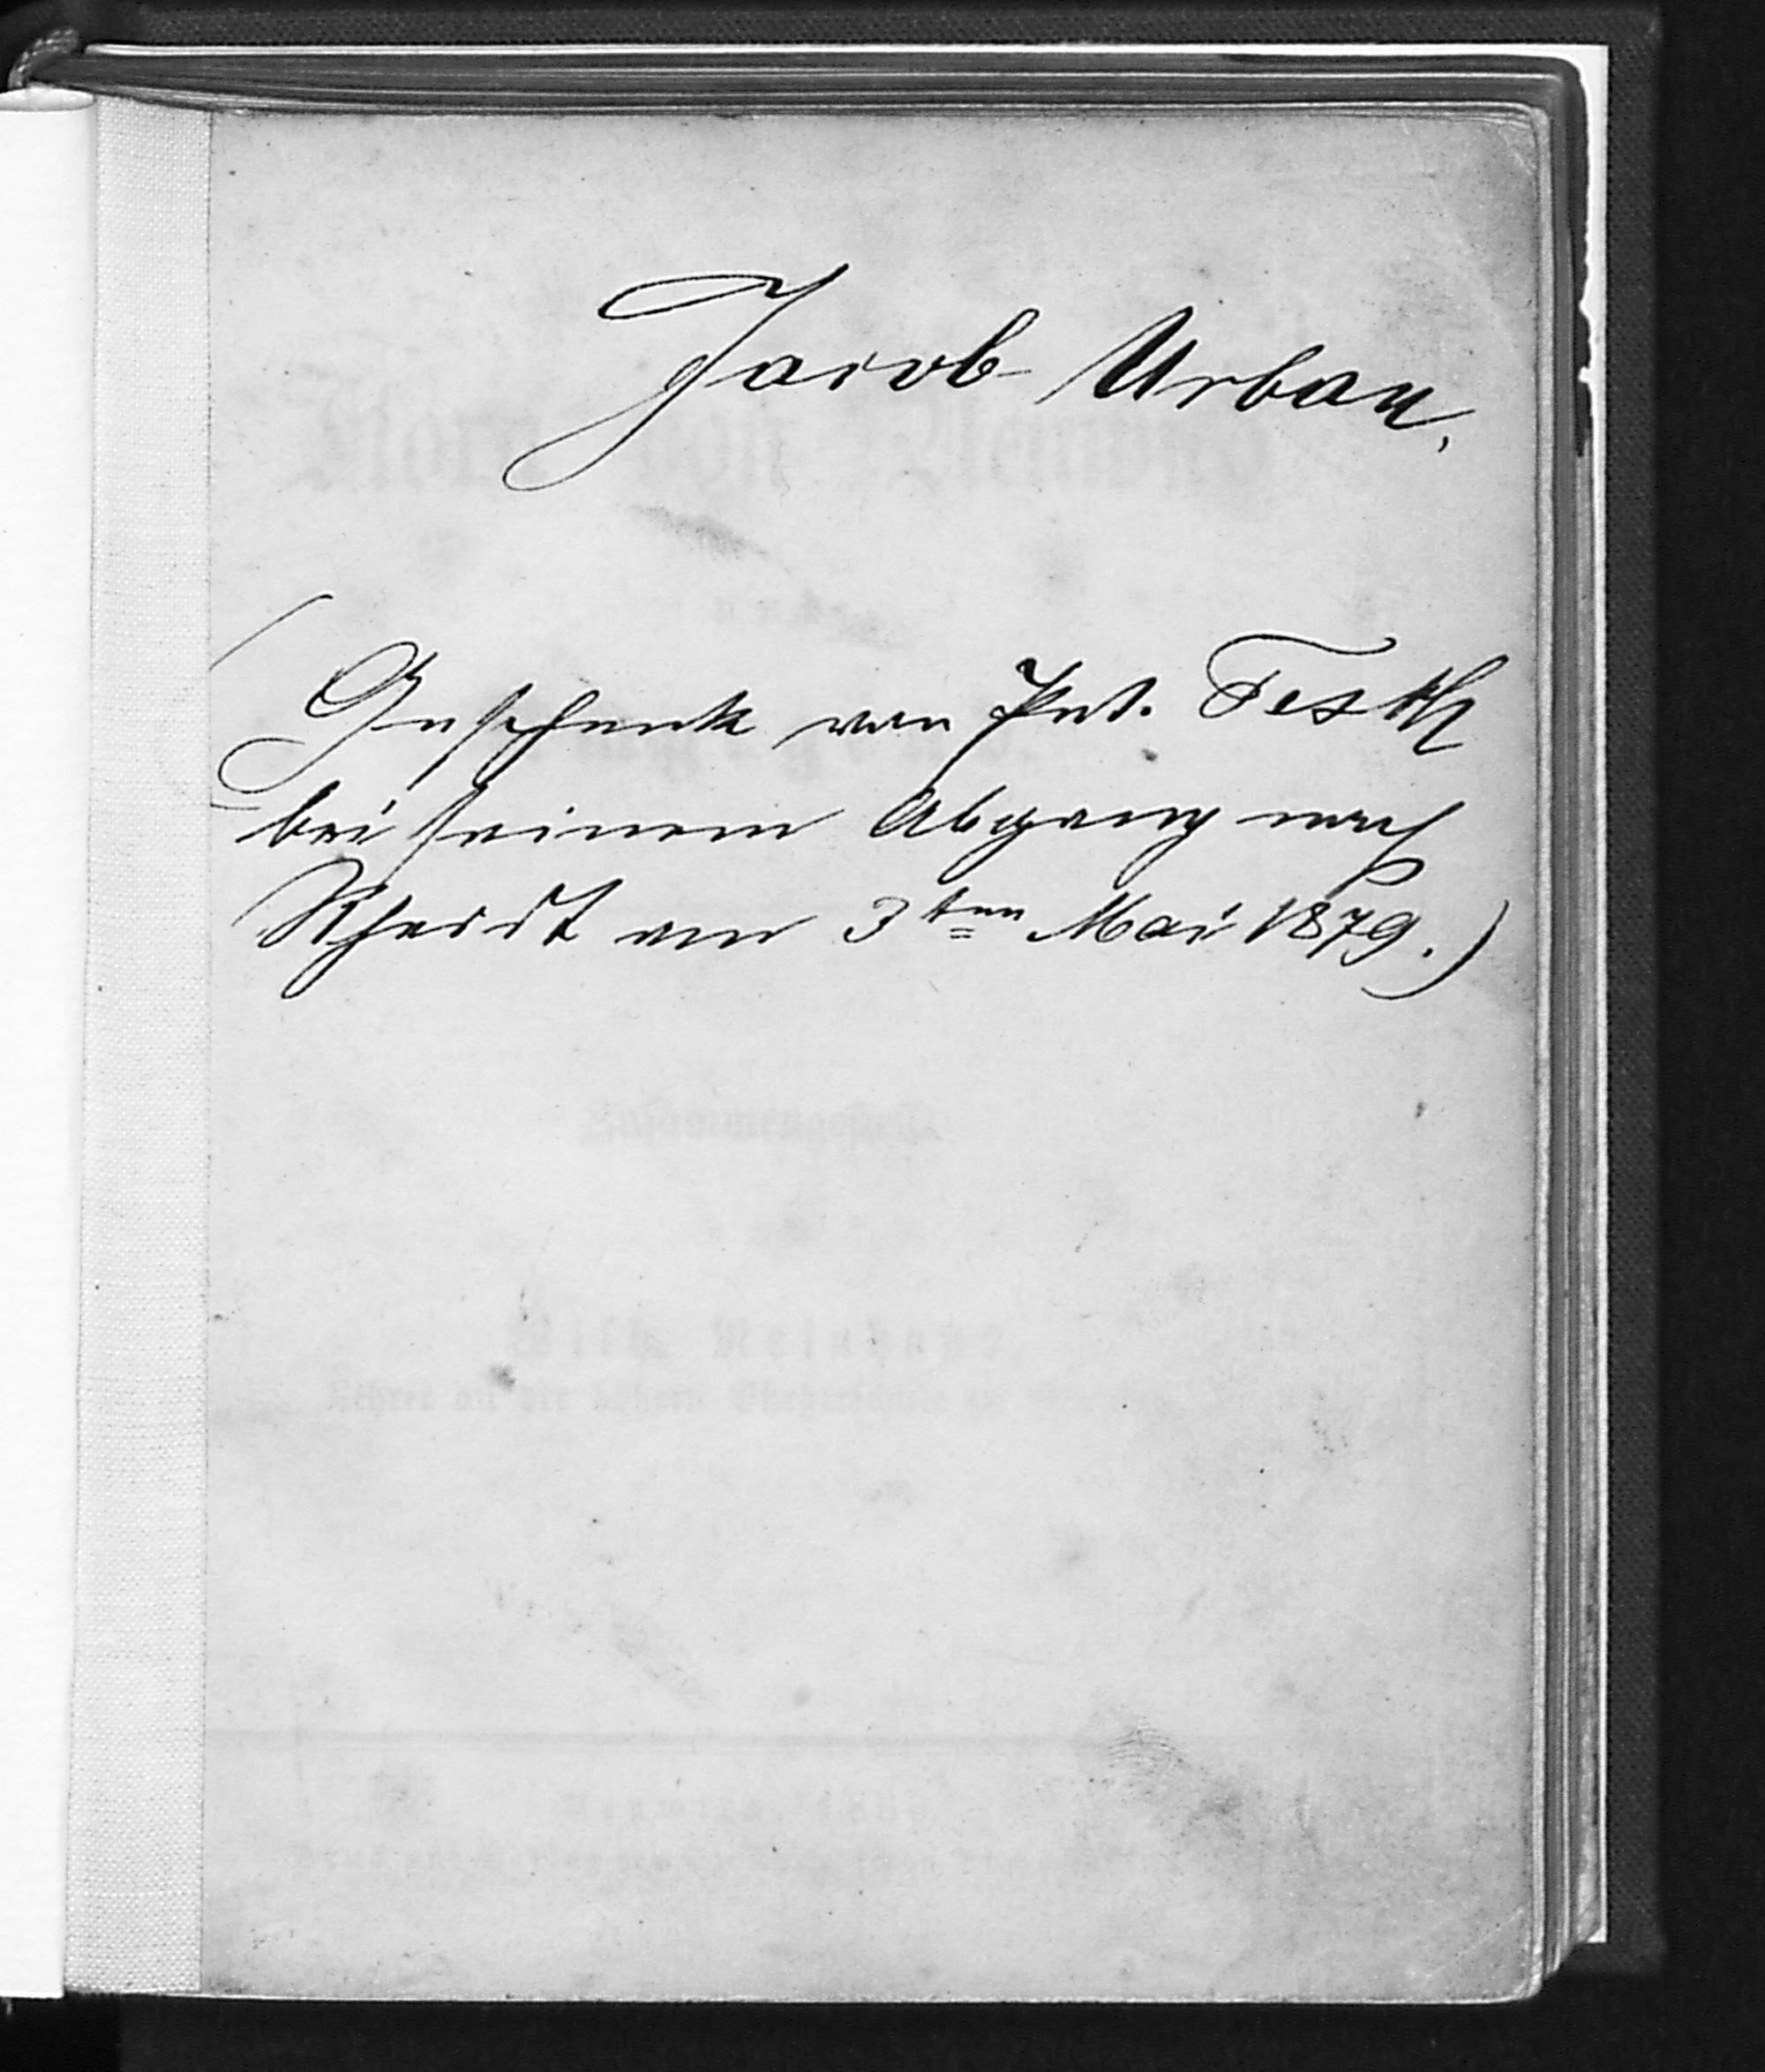 Jacob Urban.
(Geschenk von Pet. Testh
bei seinem Abgang nach
Rheidt am 3ten Mai 1879.)